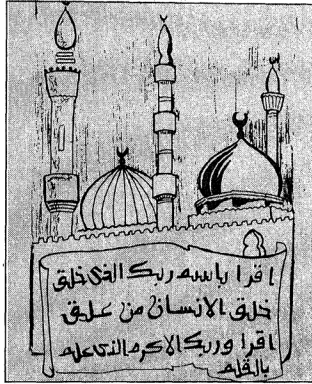 اقرا باسم ربك الذى خلق
خلق الانسان من علق
اقرا وربك الاكرم الذى علم
بالقلم